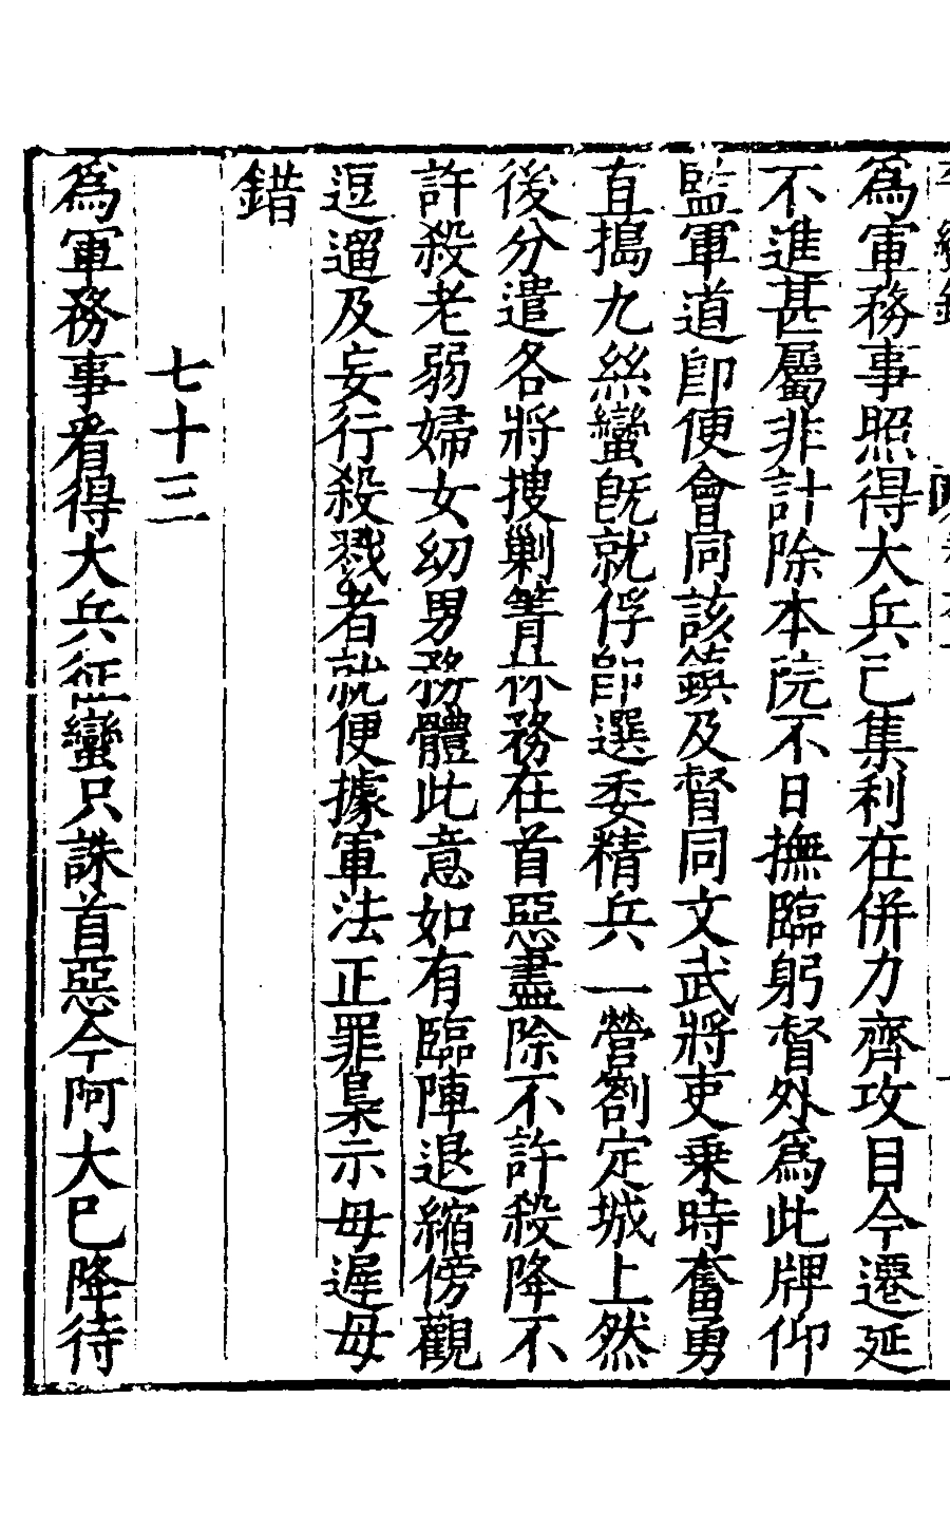 為軍務事照得大兵已集利在併力齊攻目今遷延
不進甚屬非計除本院不日撫臨躬督外為此牌仰
監軍道即便會同該鎮及督同文武將吏乘時奮勇
直搗九絲蠻既就俘即選委精兵一營劄定城上然
後分遣各將搜剿箐林務在首惡盡除不許殺降不
許殺老弱婦女幼男務體此意如有臨陣退縮傍觀
逗遛及妄行殺戮者就便據軍法正罪梟示毋遲毋
錯
七十三
為軍務事看得大兵征蠻只誅首惡今阿大已降待